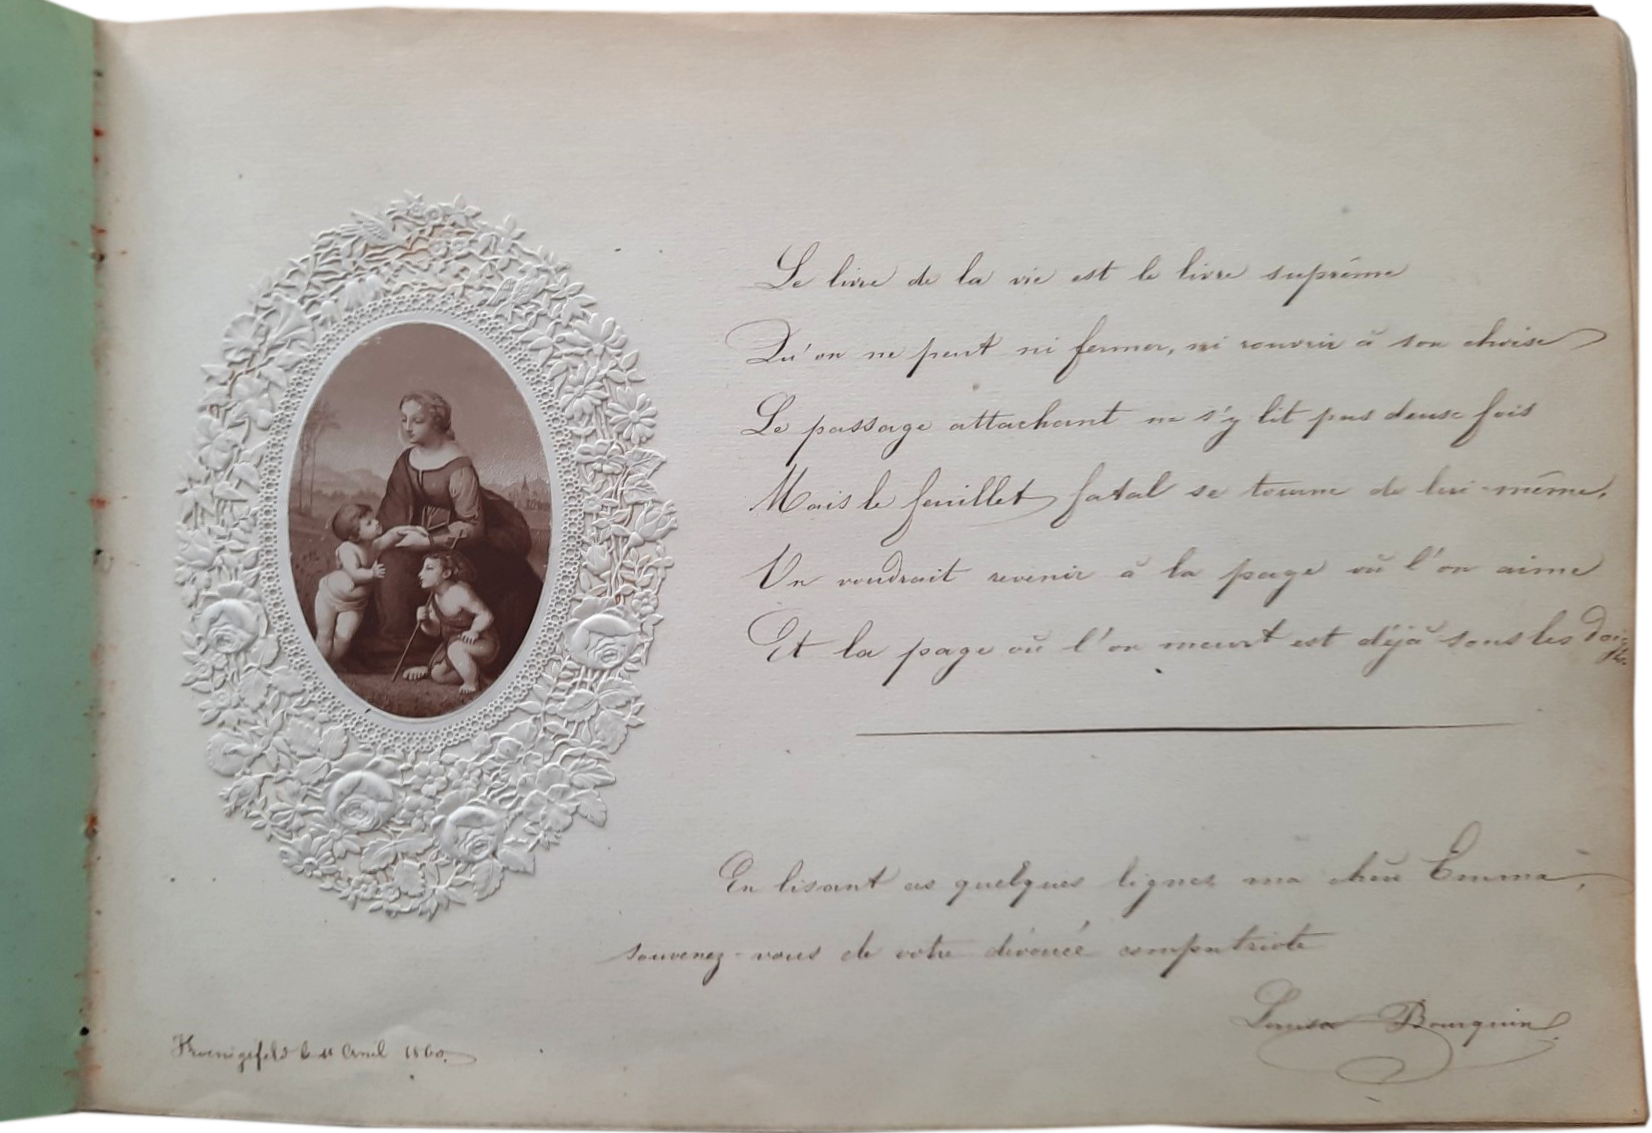 Le livre de la vie est le livre suprême
Qu'on ne peut ni fermer, ni rouvrir à son choix
Le passage attachant ne s'y lit pas deux fois
Mais le feuillet fatal se tourne de lui-même.
On voudrait revenir à la page où l'on aime
Et la page où l'on meurt est déjà sous les doigts.
En lisant ces quelques lignes ma chère Emma,
souvenez-vous de votre dévouée compatriote
Louisa Bourquin
Koenigsfeld le 11 Avril 1860.